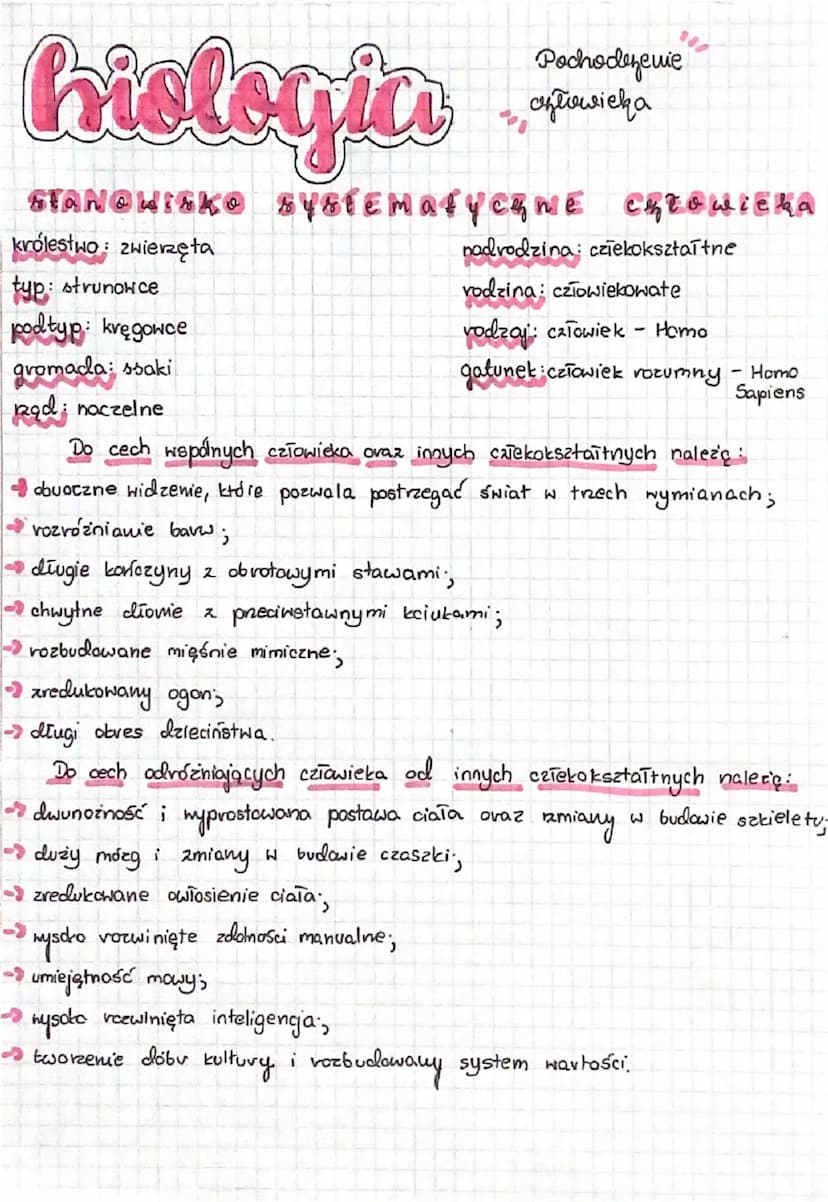 biologia
Pochodzenie
człowieka
STANOWISKO SYSTEMATYCZNE CZŁOWIEKA
królestwo: zwierzęta
typ: strunowce
podtyp: kręgowce
gromada: ssaki
rząd: naczelne
podrodzina: człekokształtne
rodzina: człowiekowate
rodzaj: człowiek - Homo
gatunek: człowiek rozumny - Homo
Sapiens
Do cech wspólnych człowieka oraz innych człekokształtnych należą:
→ obuoczne widzenie, które pozwala postrzegać świat w trzech wymianach;
→ rozróżnianie barw;
→ długie kończyny z obrotowymi stawami;
→ chwytne dłonie z przeciwstawnymi kciukami;
→ rozbudowane mięśnie mimiczne;
→ zredukowany ogon;
→ długi okres dzieciństwa.
Do cech odróżniających człowieka od innych człekokształtnych należą:
→ dwunożność i wyprostowana postawa ciała oraz zmiany w budowie szkieletu;
→ duży mózg i zmiany w budowie czaszki;
→ zredukowane owłosienie ciała;
→ wysoko rozwinięte zdolności manualne;
→ umiejętność mowy;
→ wysoko rozwinięta inteligencja;
→ tworzenie dóbr kultury i rozbudowany system wartości.